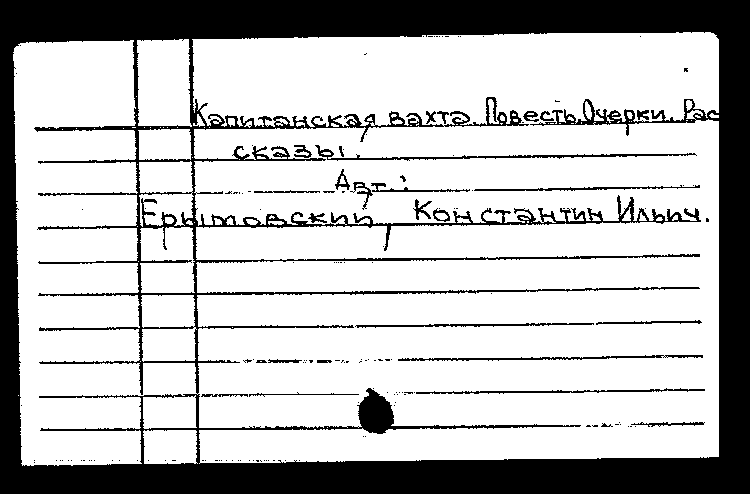 Капитанская вахта. Повесть. Очерки. Рас
сказы.
Авт.:
Ерымовский, Константин Ильич.